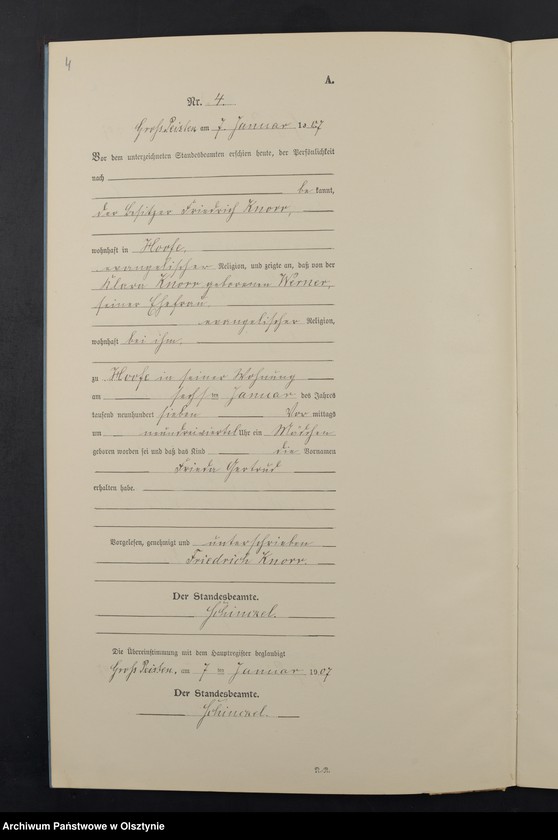 4
A.
Nr. 4.
Groß Peisten am 7 Januar 1907
Vor dem unterzeichneten Standesbeamten erschien heute, der Persönlichkeit
nach
bekannt,
der Besitzer Friedrich Knorr,
wohnhaft in Hoofe,
evangelischer Religion, und zeigte an, daß von der
Klara Knorr geborenen Werner,
seiner Ehefrau,
evangelischer Religion,
wohnhaft bei ihm,
zu Hoofe in seiner Wohnung
am sechsten Januar des Jahres
tausend neunhundert sieben Vor mittags
um neundreiviertel Uhr ein Mädchen
geboren worden sei und daß das Kind die Vornamen
Frieda Gertrud
erhalten habe.
Vorgelesen, genehmigt und unterschrieben
Friedrich Knorr.
Der Standesbeamte.
Die Übereinstimmung mit dem Hauptregister beglaubigt
Groß Peisten, am 7 ten Januar 1907
Der Standesbeamte.
Archiwum Państwowe w Olsztynie